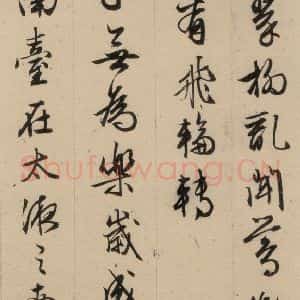 柳亂聞鶯
有飛輪轉
無為樂歲成
南臺在太液之南
Shufawang.CN